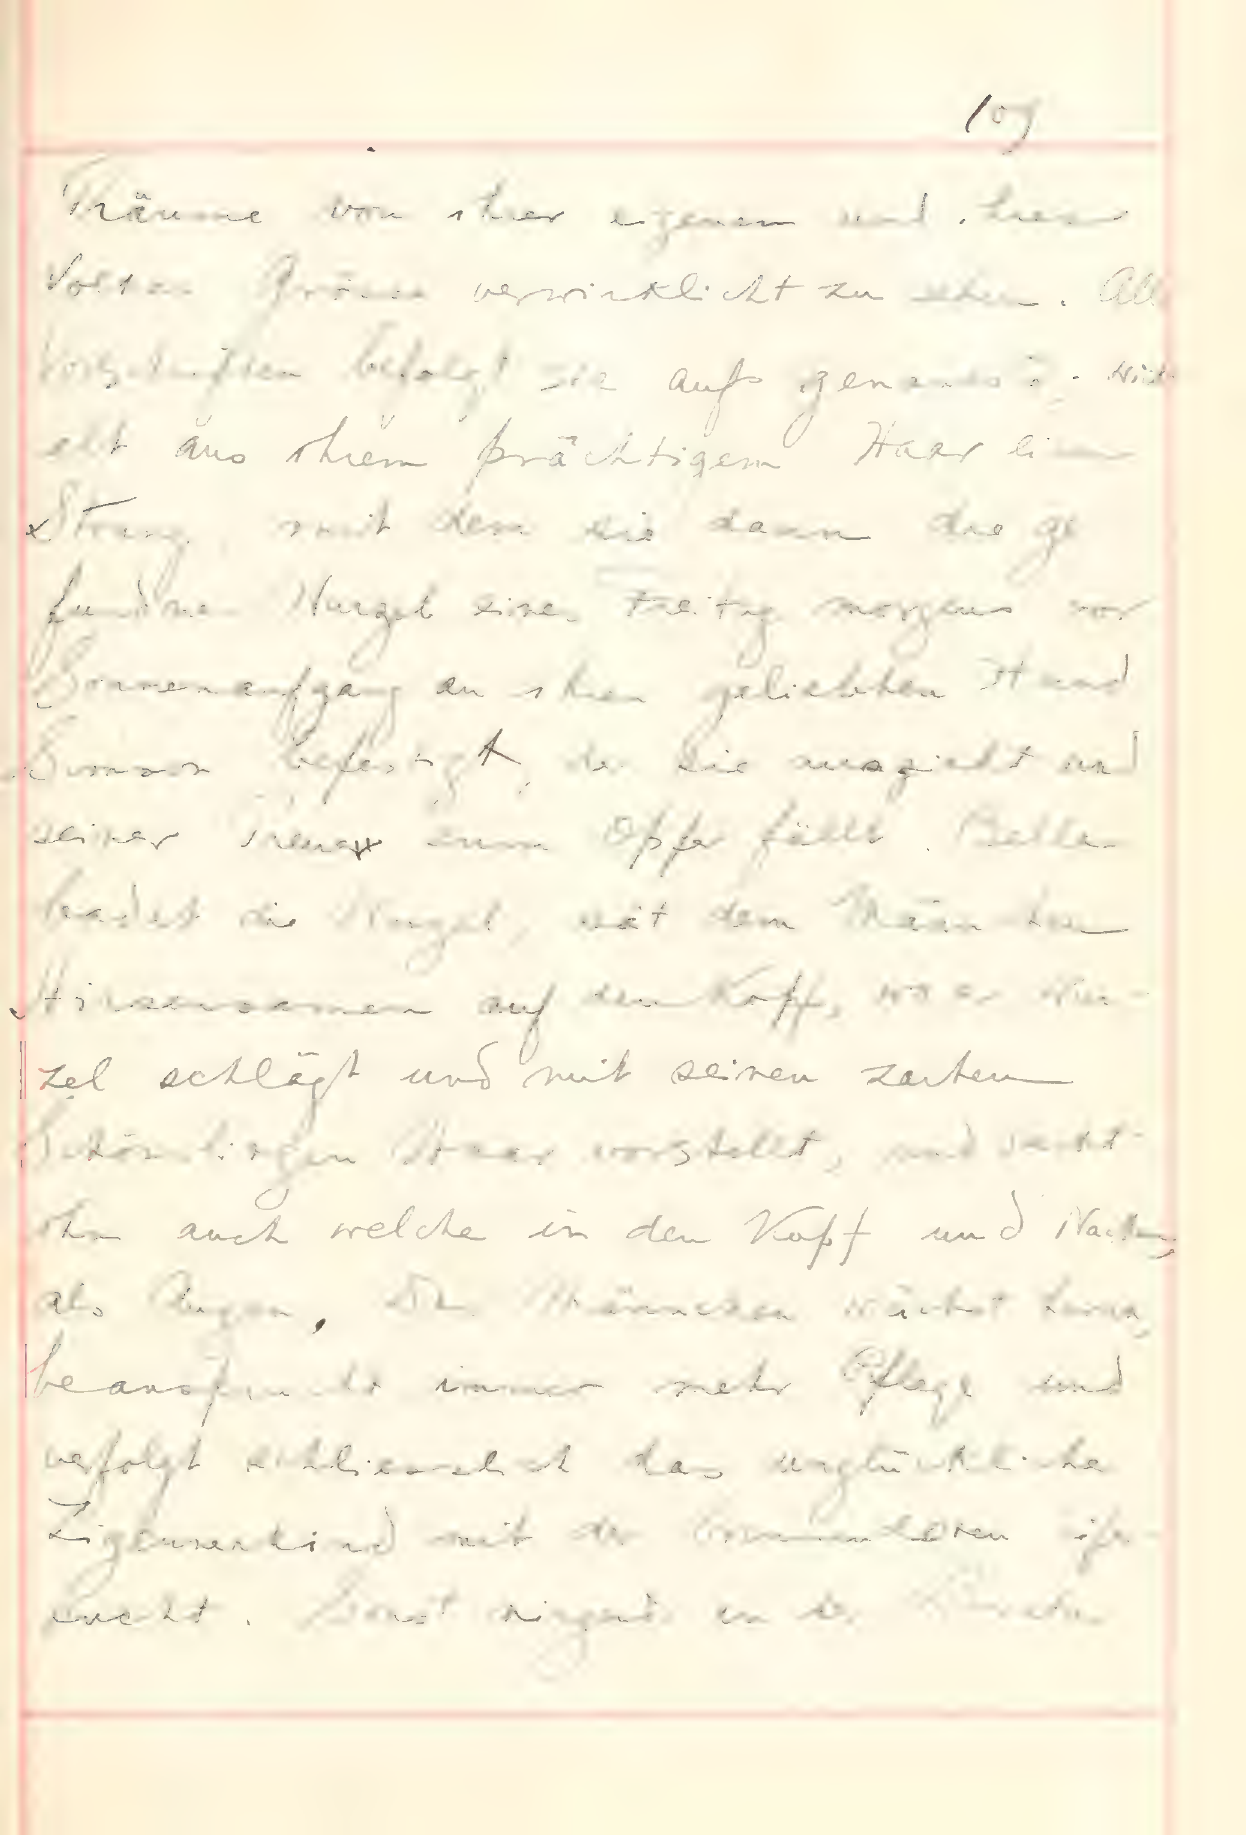 109
Träume von ihrer eigenen und ihres
Volkes Grösse verwirklicht zu sehen. Alle
Vorschriften befolgt sie aufs genaueste,
aus ihrem prächtigem Haar einen
Strang, mit dem sie dann die ge
fundne Wurzel eines Freitag morgens vor
Sonnenaufgang an ihren geliebten Hund
befestigt, der sie auszieht und
seiner Treue zum Opfer fällt. Bella
badet die Wurzel, sät dem Männchen
Hirsensamen auf den Kopf, wo er Wur-
zel schlägt und mit seinen zarten
Schösslingen Haar vorstellt, und
ihm auch welche in den Kopf und Nacken,
als Augen. Das Männchen wächst heran,
beansprucht immer mehr Pflege und
verfolgt schliesslich das unglückliche
Zigeunerkind mit der eifer
sucht. Sonst nirgends in der